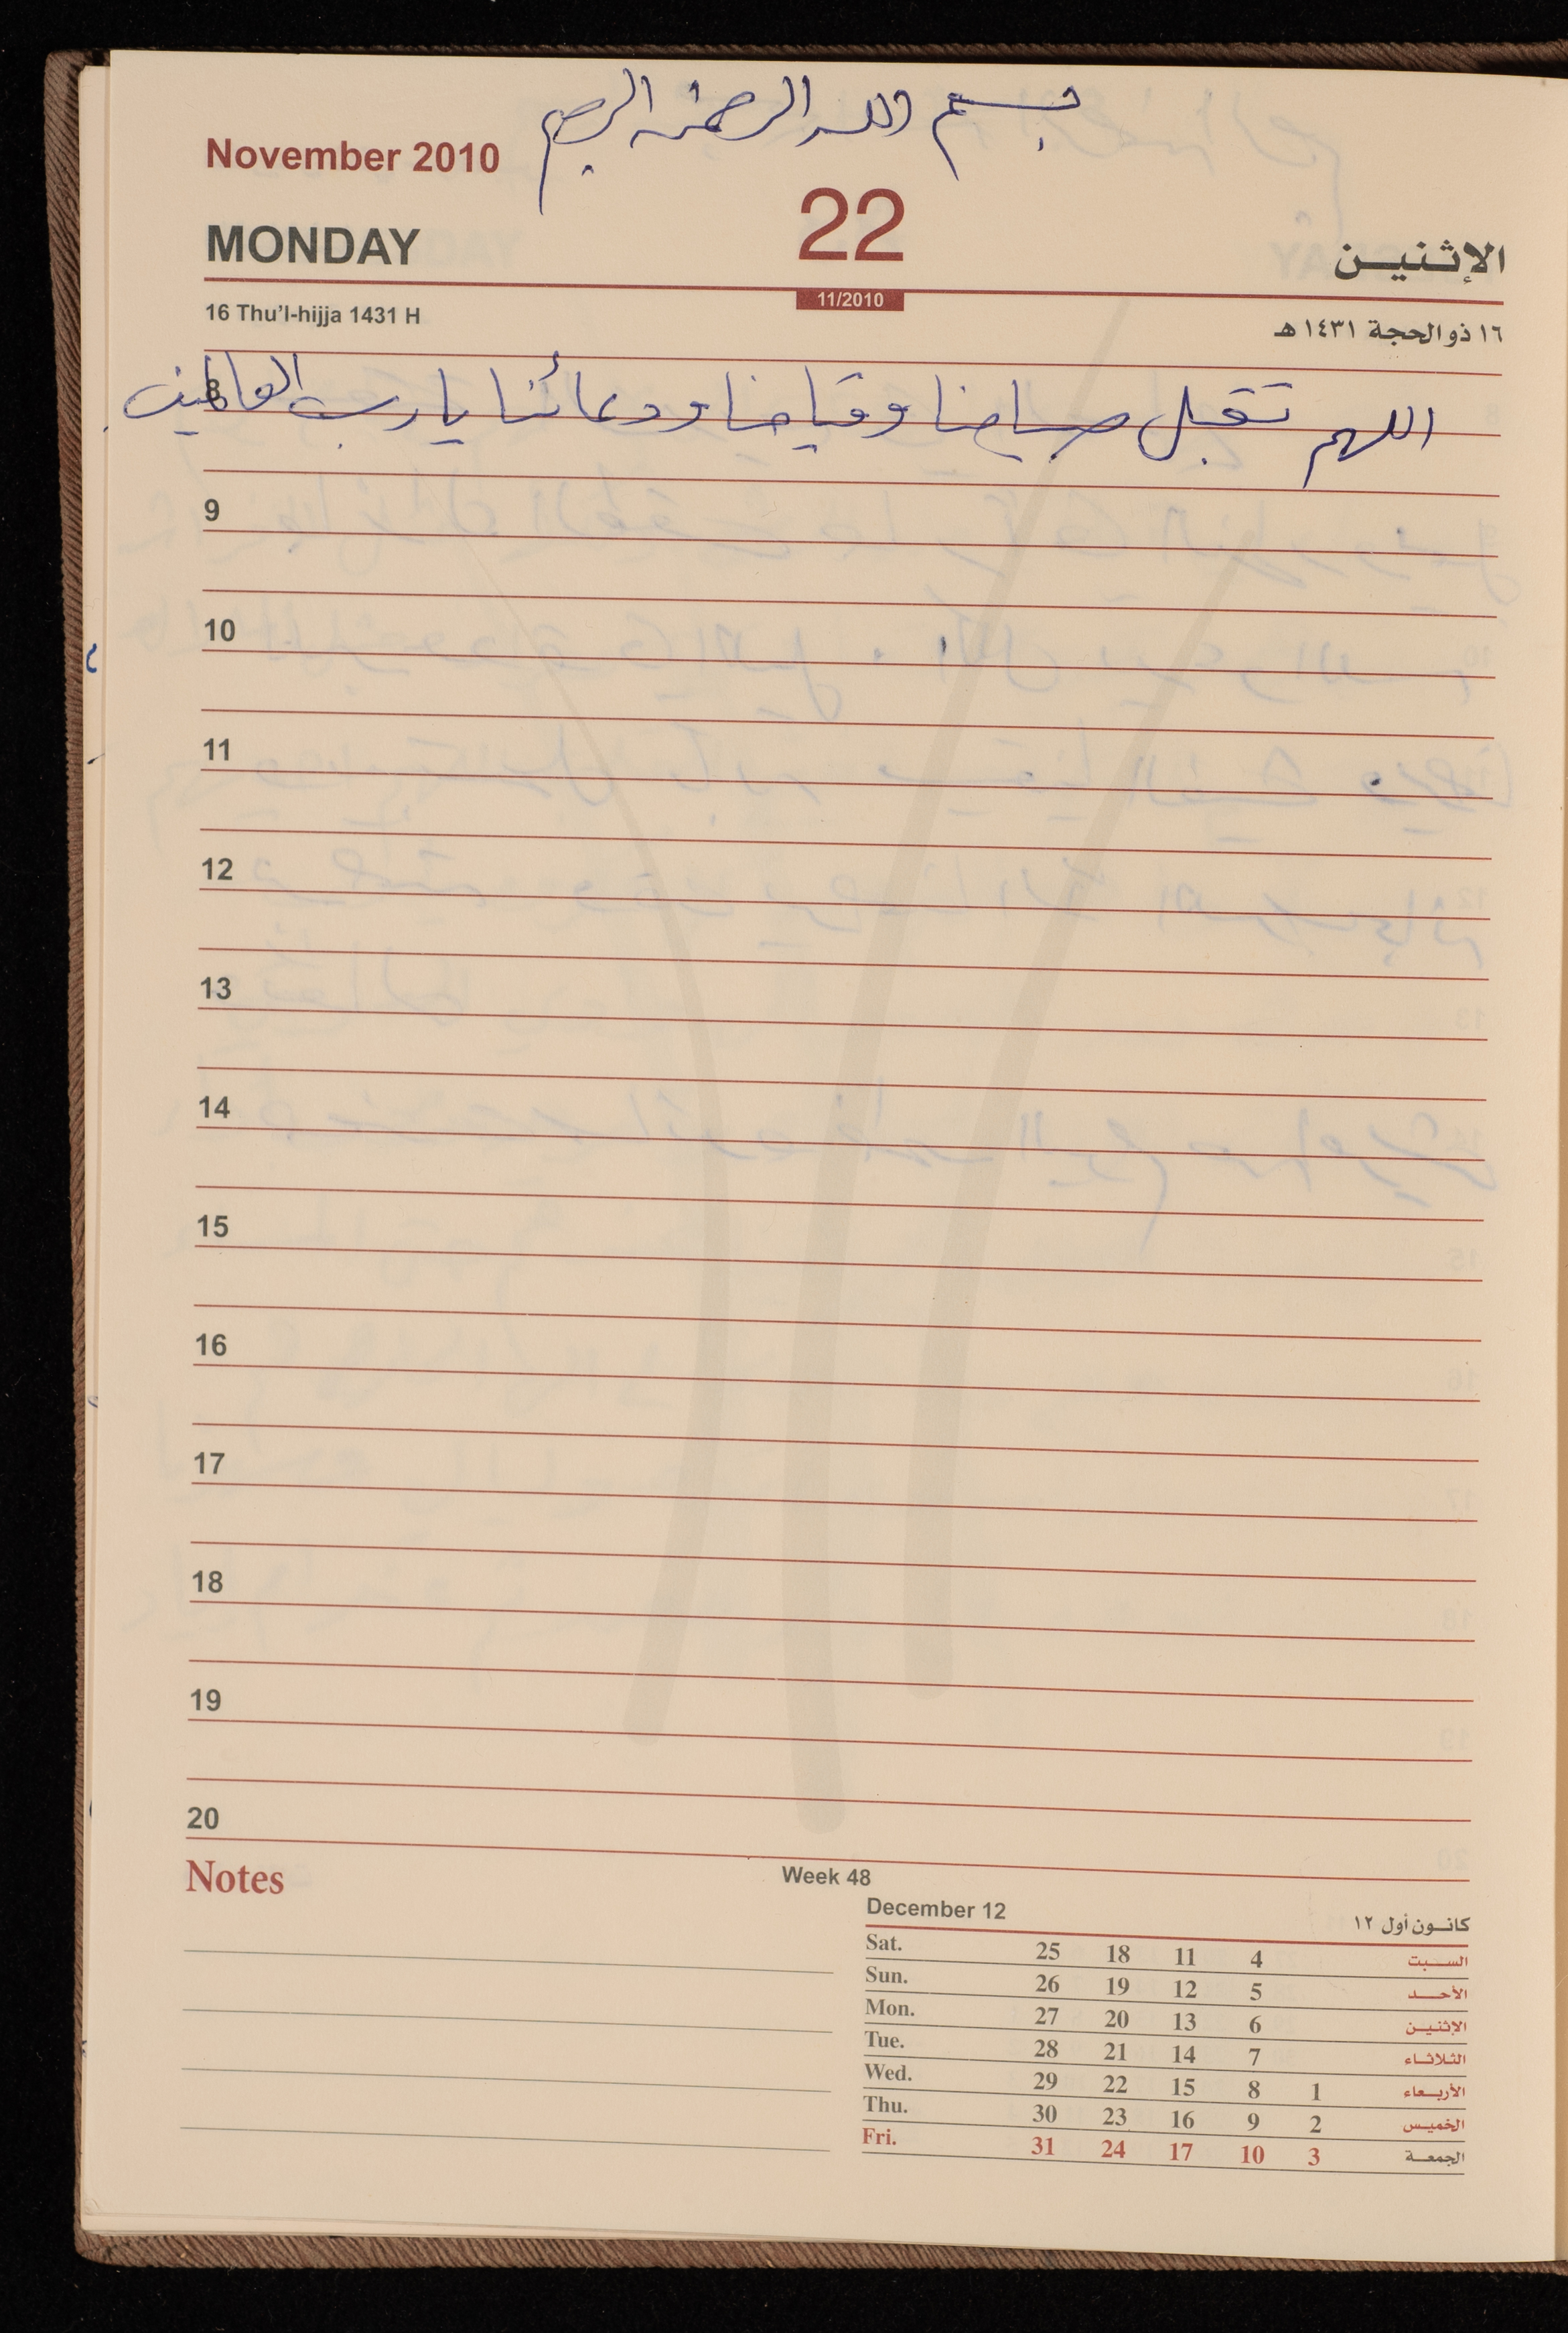 بسم الله الرحمن الرحيم
November 2010
MONDAY 22 الإثنين
16 Thu'l-hijja 1431 H 11/2010 ١٦ ذو الحجة ١٤٣١ هـ
اللهم تقبل صيامنا وقيامنا ودعائنا يا رب العالمين
8
9
10
11
12
13
14
15
16
17
18
19
20
Notes
Week 48
December 12 كانون أول ١٢
Sat. 25 18 11 4 السبت
Sun. 26 19 12 5 الأحد
Mon. 27 20 13 6 الإثنين
Tue. 28 21 14 7 الثلاثاء
Wed. 29 22 15 8 1 الأربعاء
Thu. 30 23 16 9 2 الخميس
Fri. 31 24 17 10 3 الجمعة